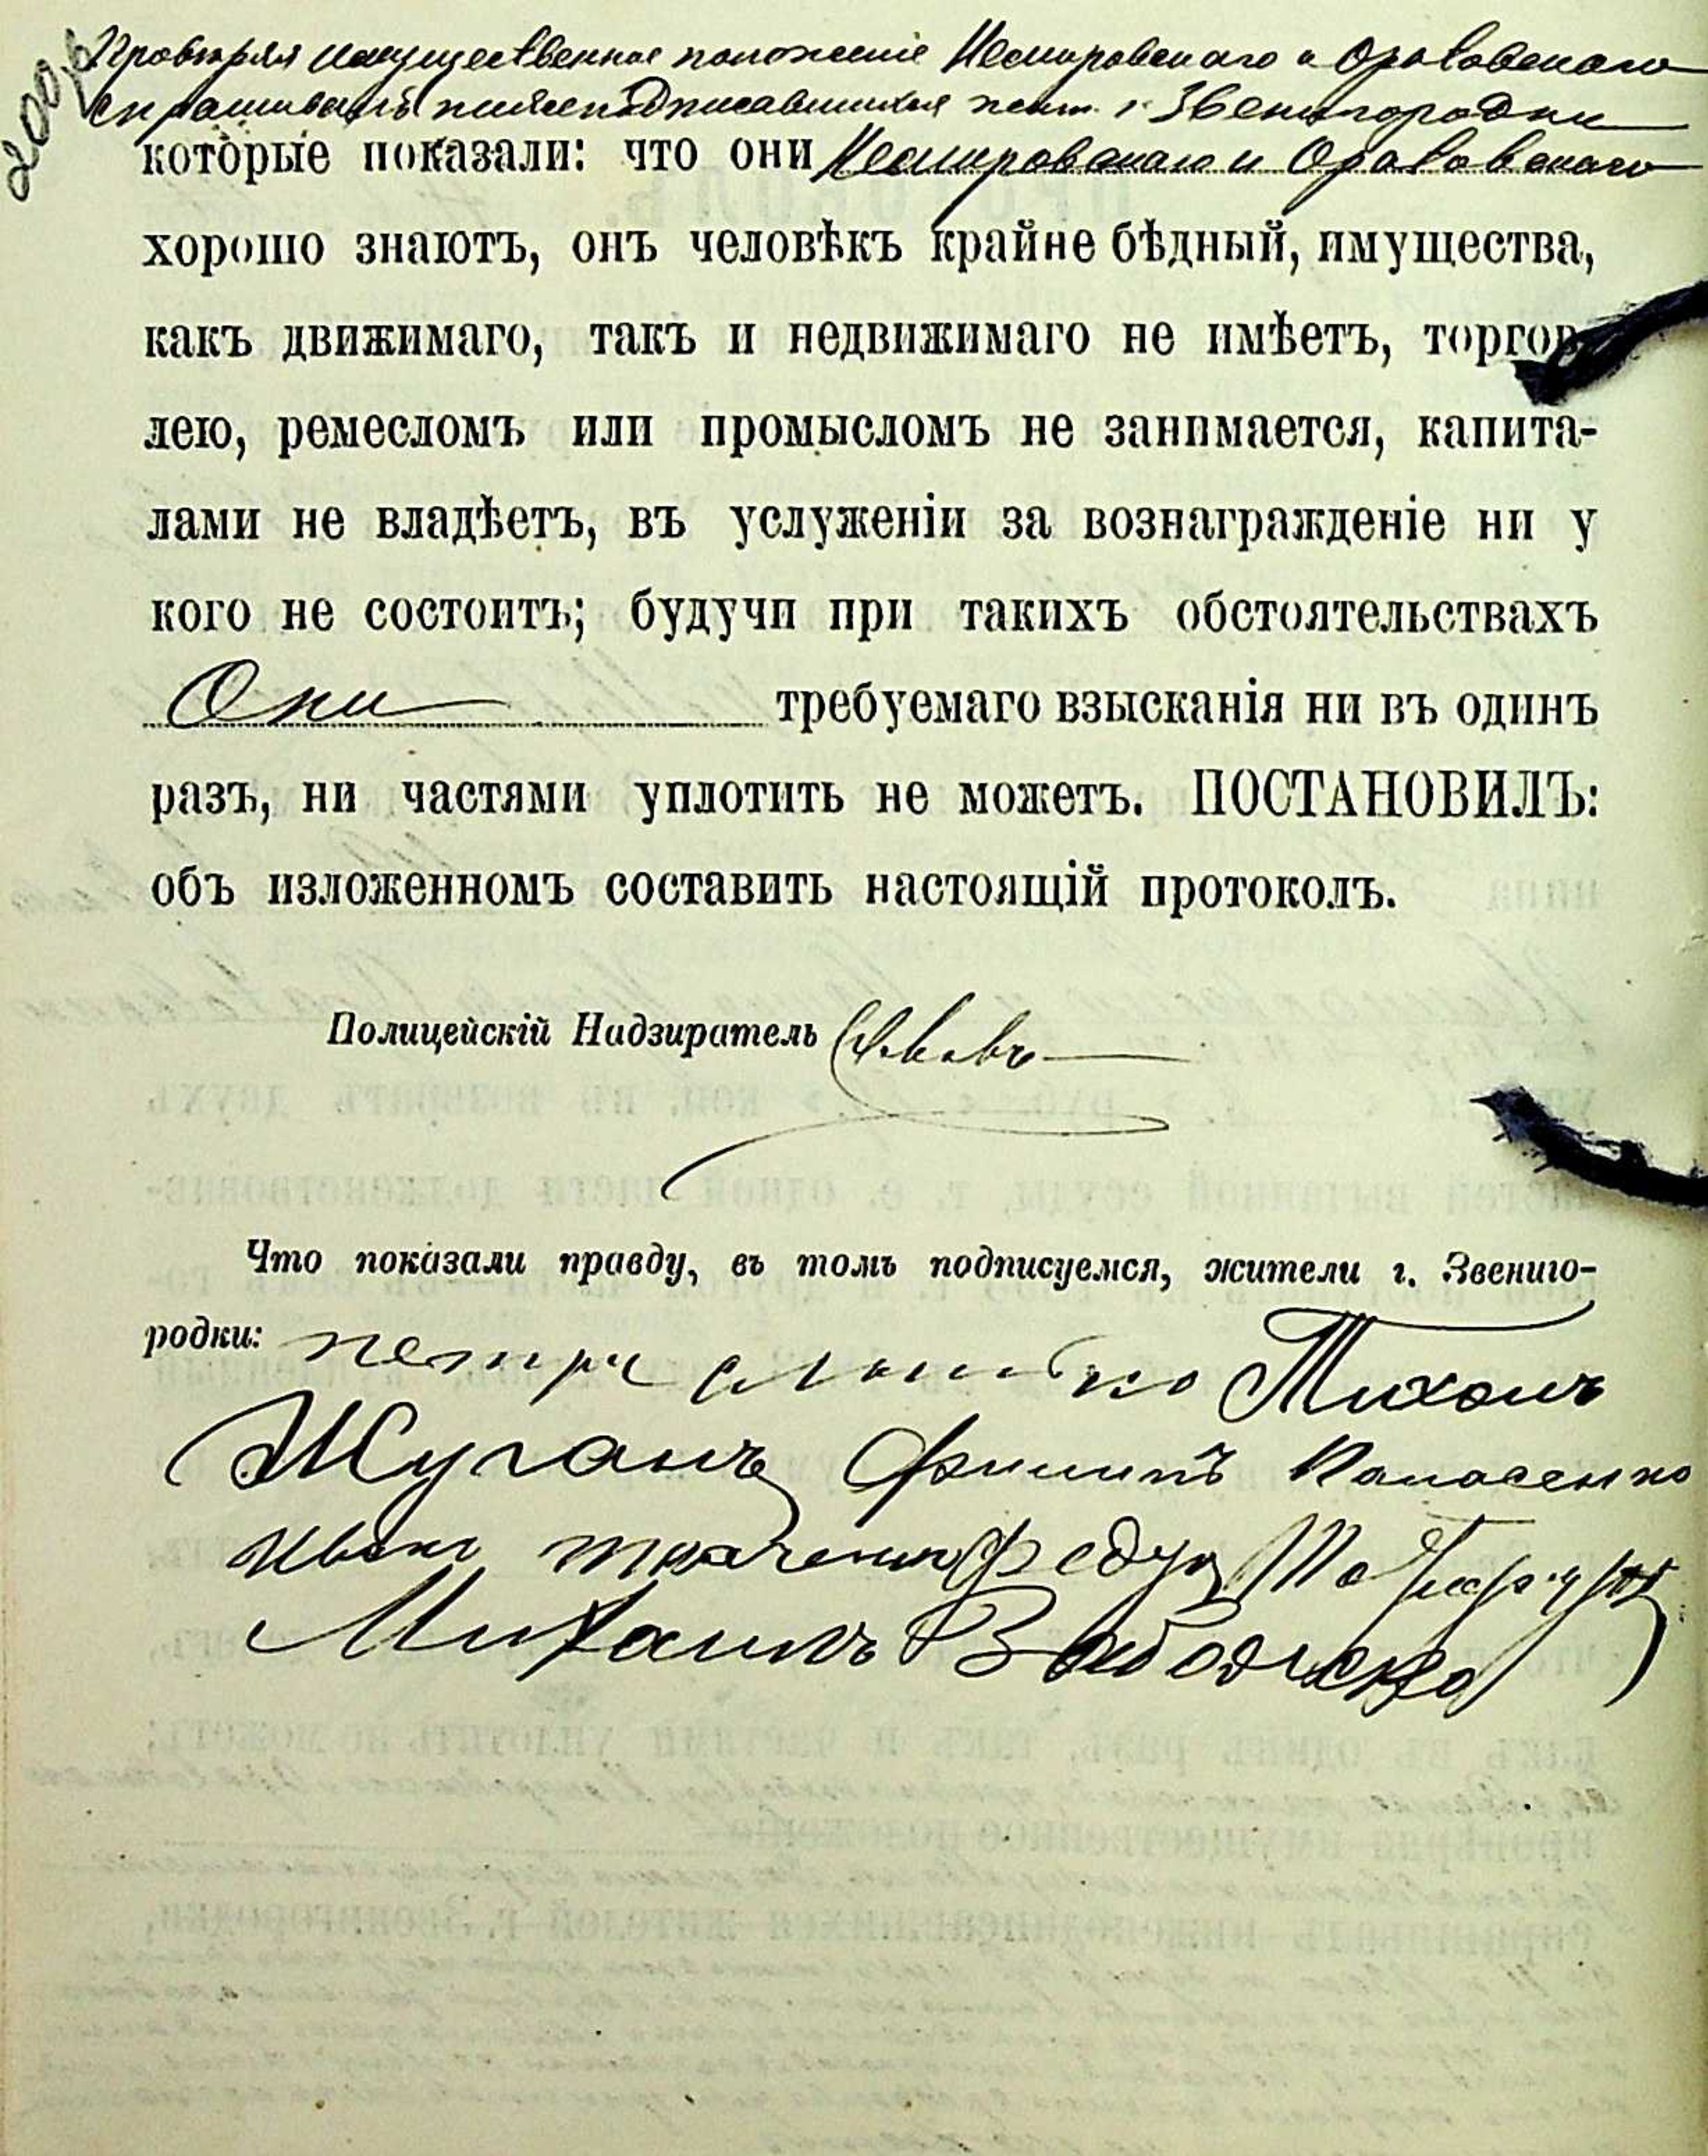 200 р
Провѣряя имущественное положеніе Немировскаго и Ораловскаго
спрашивалъ нижеподписавшихся жит. г. Звенигородки
которыіе показали: что они Немировскаго и Ораловскаго
хорошо знаютъ, онъ человѣкъ крайне бѣдный, имущества,
какъ движимаго, такъ и недвижимаго не имѣетъ, торгов-
лею, ремесломъ или промысломъ не занимается, капита-
лами не владѣетъ, въ услуженіи за вознагражденіе ни у
кого не состоитъ; будучи при такихъ обстоятельствахъ
Они требуемаго взысканія ни въ одинъ
разъ, ни частями уплотить не можетъ. ПОСТАНОВИЛЪ:
объ изложенномъ составить настоящій протоколъ.
Полицейскій Надзиратель
Что показали правду, въ томъ подписуемся, жители г. Звениго-
родки: петръ Тихонъ
Жуганъ Филипъ Панасенко
Иванъ ткаченко федур
Михаилъ